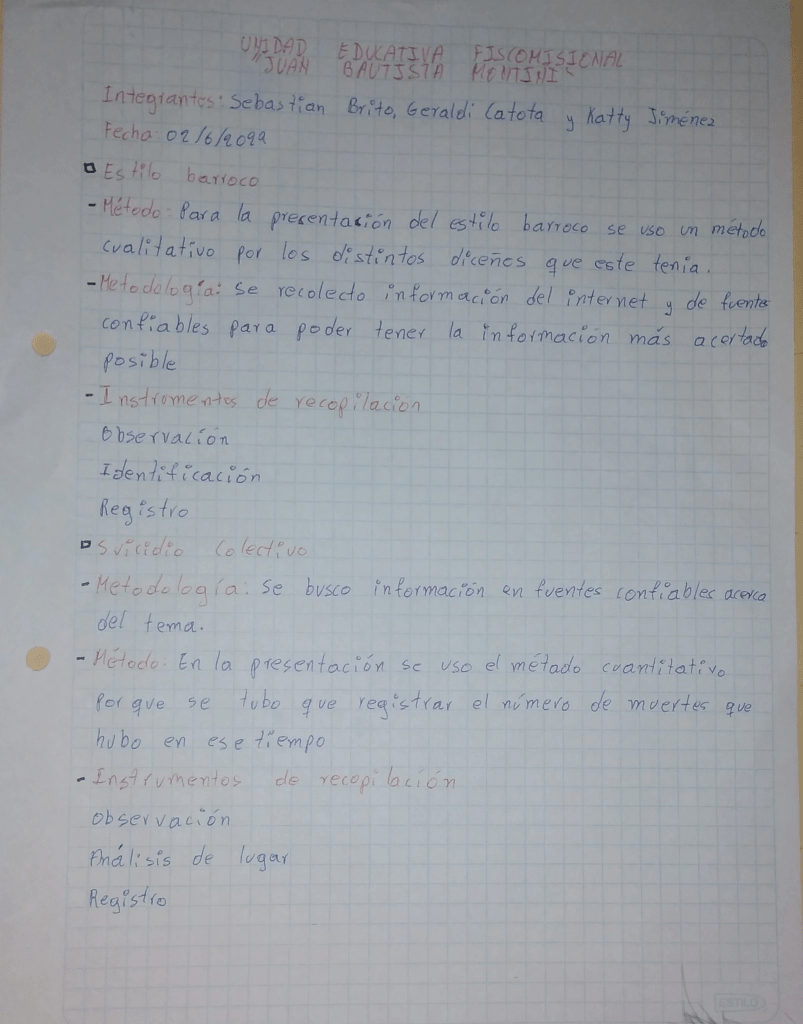 UNIDAD EDUCATIVA FISCOMISIONAL
"JUAN BAUTISTA MONTINI"
Integrantes: Sebastian Brito, Geraldi Catota y Katty Jiménez
Fecha: 02/6/2022
Estilo barroco
- Método: Para la presentación del estilo barroco se uso un método
cualitativo por los distintos diceños que este tenia.
- Metodología: Se recolecto información del internet y de fuentes
confiables para poder tener la información más acertado
posible
- Instromentos de recopilacion
Observación
Identificación
Registro
Suicidio Colectivo
- Metodología: Se busco información en fuentes confiables acerca
del tema.
- Método: En la presentación se uso el métado cuantitativo
Por que se tubo que registrar el número de muertes que
hubo en ese tiempo
- Instrumentos de recopilación
Observación
Análisis de lugar
Registro
ESTILO